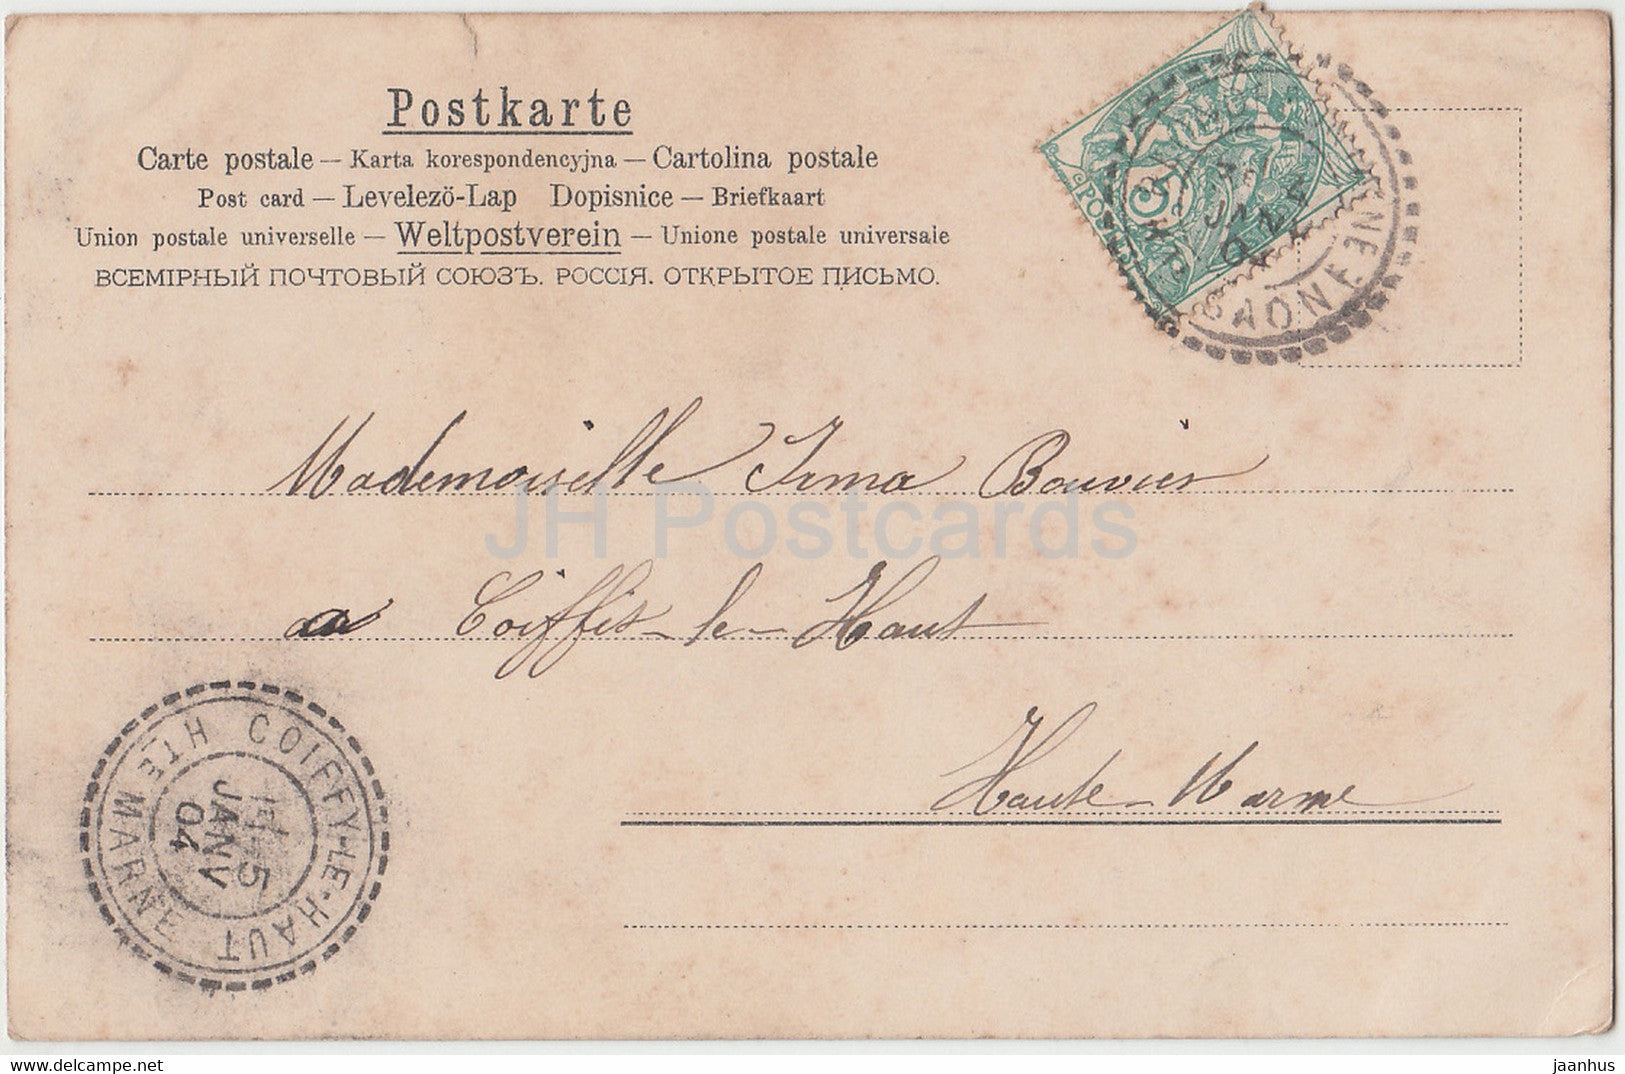 Postkarte
Carte postale — Karta korespondencyjna — Cartolina postale
Post card — Levelező-Lap Dopisnice — Briefkaart
Union postale universelle — Weltpostverein — Unione postale universale
ВСЕМІРНЫЙ ПОЧТОВЫЙ СОЮЗЪ. РОССІЯ. ОТКРЫТОЕ ПИСЬМО.
POSTES
5
JANV
SAONE
Mademoiselle Irma Bouvier
JH Postcards
a Coiffis-le-Haut
Haute-Marne
COIFFY-LE-HAUT
HTE MARNE
5
JANV
04
www.hippostcard.com
jaanhus